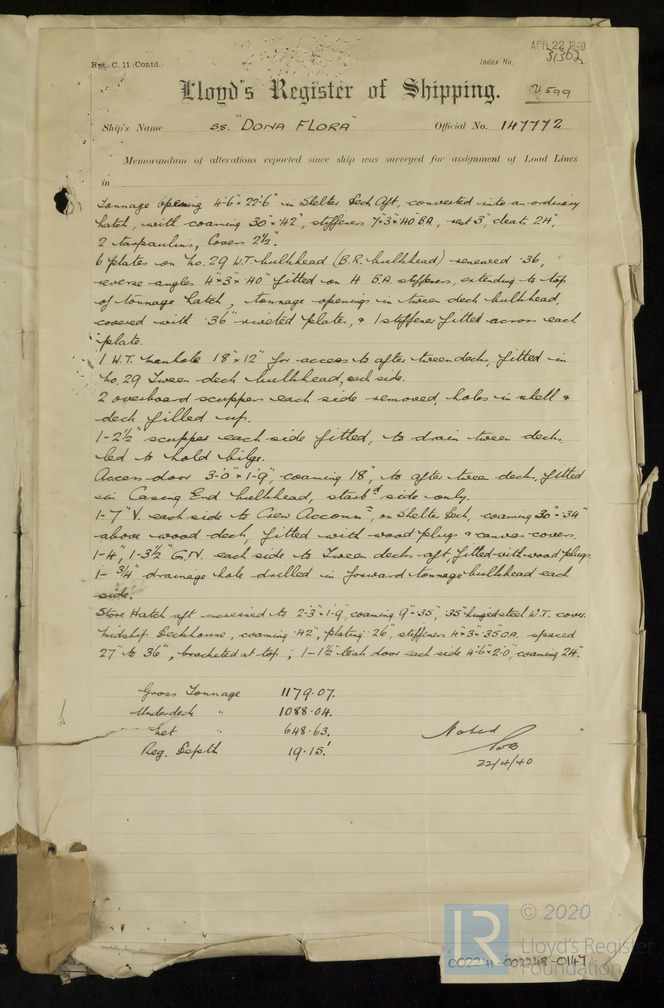 APR 22 1940
Rpt. C. 11 (Contd.)
Index No. 31362
Lloyd's Register of Shipping.
U599
Ship's Name S.S. "DONA FLORA" Official No. 147772
Memorandum of alterations reported since ship was surveyed for assignment of Load Lines
in
Tonnage opening 4'6" × 22'6" in Shelter Deck Aft, converted into an ordinary
hatch, with coaming 30" × .42", stiffeners 7" × 3" × .40 BA, rest 3", cleats 24",
2 tarpaulins, Covers 2½".
6 plates on No. 29 W.T. bulkhead (B.R. bulkhead) renewed .36,
reverse angles 4" × 3" × .40" fitted on 4 B.A. stiffeners, extending to top
of tonnage hatch, tonnage openings in tween deck bulkhead,
covered with .36" riveted plates, & 1 stiffener fitted across each
plate.
1 W.T. manhole 18" × 12" for access to after tween decks, fitted in
No. 29 Tween deck bulkhead, each side.
2 overboard scuppers each side removed, holes in shell &
deck filled up.
1 - 2½" scupper each side fitted, to drain tween decks,
led to hold bilge.
Access door 3'-0" × 1'-9", coaming 18", to after tween decks, fitted
in Casing End bulkhead, starbd side only.
1 - 7" V. each side to Crew Accomn, on Shelter Deck, coaming 30" × .34"
above wood deck, fitted with wood plugs & canvas covers.
1 - 4", 1 - 3½" G.N. each side to Tween decks aft, fitted with wood plugs.
1 - ¾" drainage hole drilled in forward tonnage bulkhead each
side.
Store Hatch aft increased to 2'-3" × 1'-9", coaming 9" × .35", .35" hinged steel W.T. cover.
Midship Deckhouse, coaming .42", plating .26", stiffeners 4" × 3" × .35 O.A. spaced
27" to 36", bracketed at top; 1 - 1½" teak door each side 4'-6" × 2'-0", coaming 24".
Gross Tonnage 1179.07.
Underdeck " 1088.04.
Net " 648.63.
Reg. Depth 19.15'
Noted
22/4/40
© 2020
LR
Lloyd's Register
Foundation
002241-002248-0147